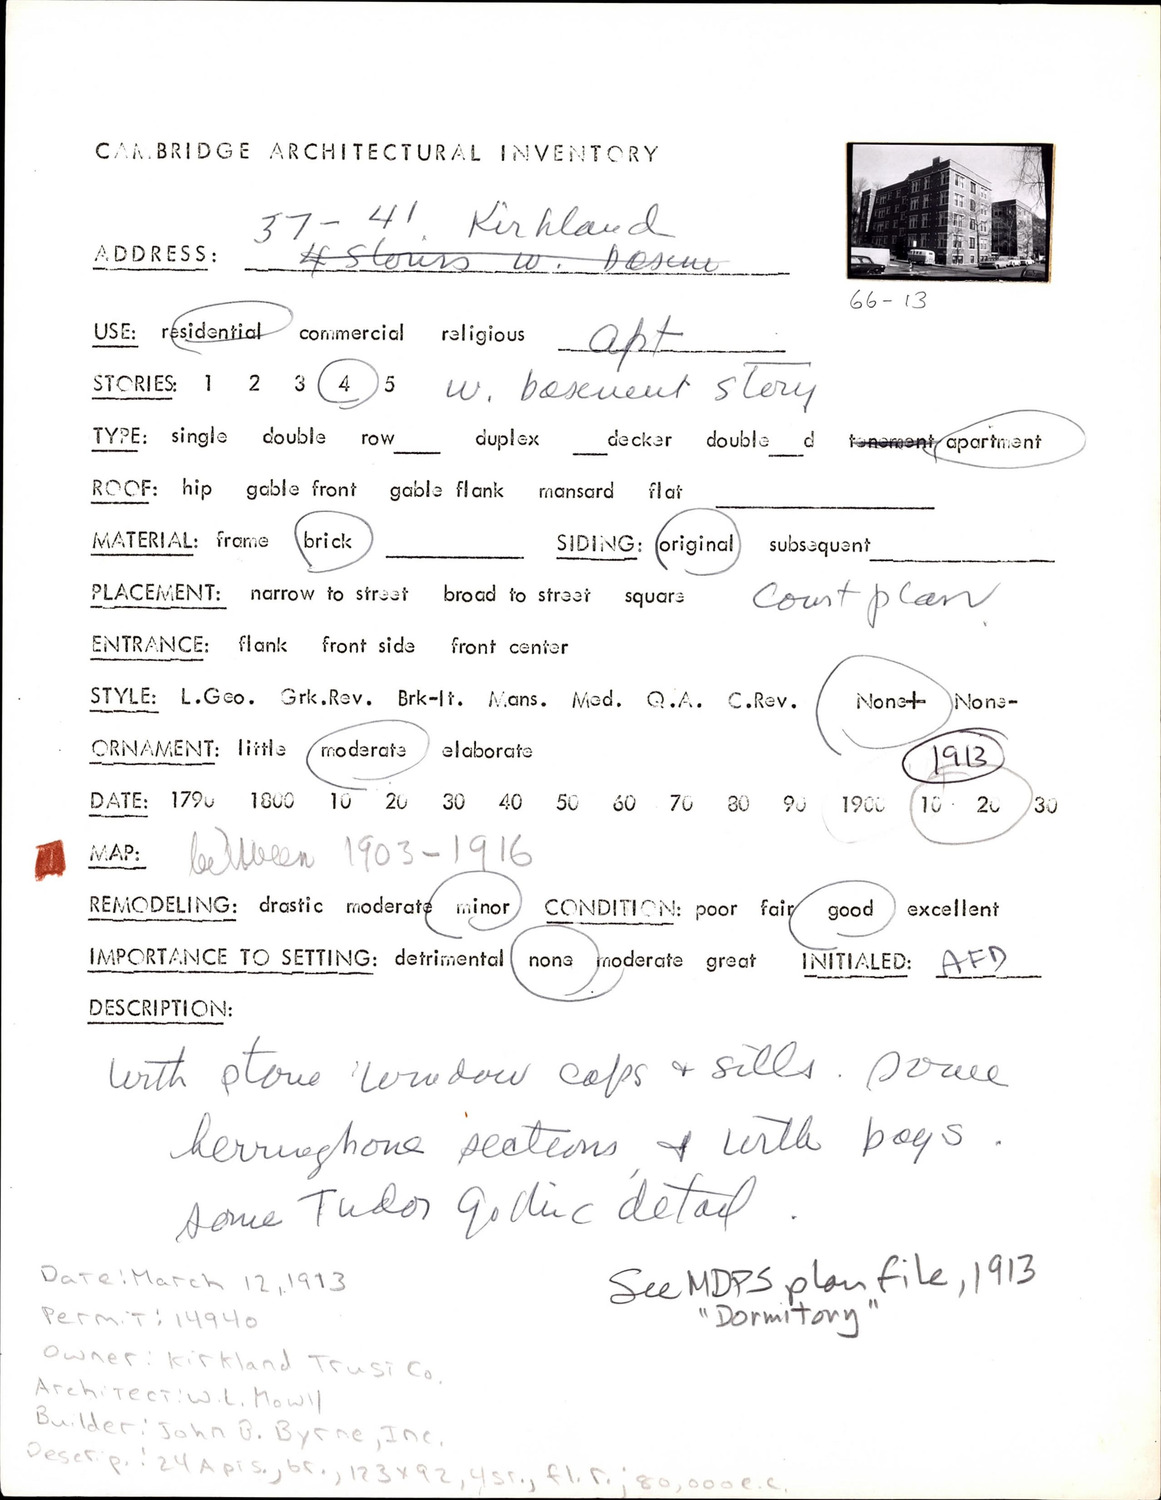 CAMBRIDGE ARCHITECTURAL INVENTORY
37-41 Kirkland
ADDRESS: 4 stories w. baseme
66-13
USE: residential commercial religious apt
STORIES: 1 2 3 4 5 w. basement story
TYPE: single double row___ duplex ___decker double___d tenement apartment
ROOF: hip gable front gable flank mansard flat
MATERIAL: frame brick SIDING: original subsequent
PLACEMENT: narrow to street broad to street square Court plan
ENTRANCE: flank front side front center
STYLE: L.Geo. Grk.Rev. Brk-It. Mans. Med. Q.A. C.Rev. None+ None-
ORNAMENT: little moderate elaborate 1913
DATE: 1790 1800 10 20 30 40 50 60 70 80 90 1900 10 20 30
MAP: between 1903-1916
REMODELING: drastic moderate minor CONDITION: poor fair good excellent
IMPORTANCE TO SETTING: detrimental none moderate great INITIALED: AFD
DESCRIPTION:
with stone window caps + sills. some
herringbone sections, + with bays.
some Tudor Gothic detail.
See MDPS plan file, 1913
"Dormitory"
Date: March 12, 1913
Permit: 14940
Owner: Kirkland Trust Co.
Architect: W.L. Mowll
Builder: John B. Byrne, Inc.
Descrip.: 24 Apts., br., 123x92, 4st., fl. r.; 80,000 e.c.